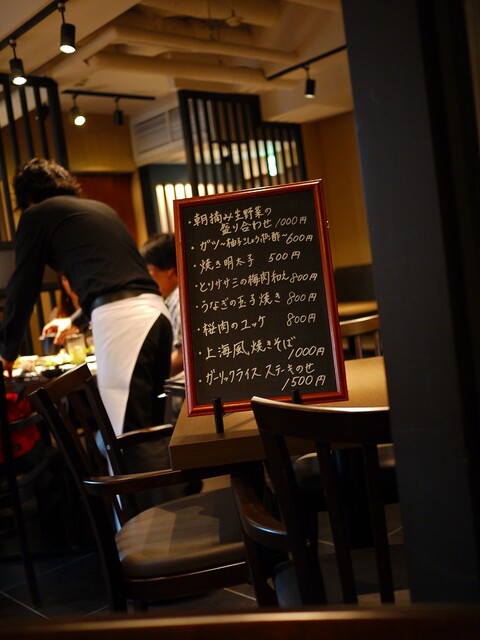 ・朝摘み生野菜の
盛り合わせ 1000円
・ガツ〜柚子こしょうポン酢〜600円
・焼き明太子 500円
・とりササミの梅肉和え800円
・うなぎの玉子焼き 800円
・桜肉のユッケ 800円
・上海風焼きそば
1000円
・ガーリックライス ステーキのせ
1500円